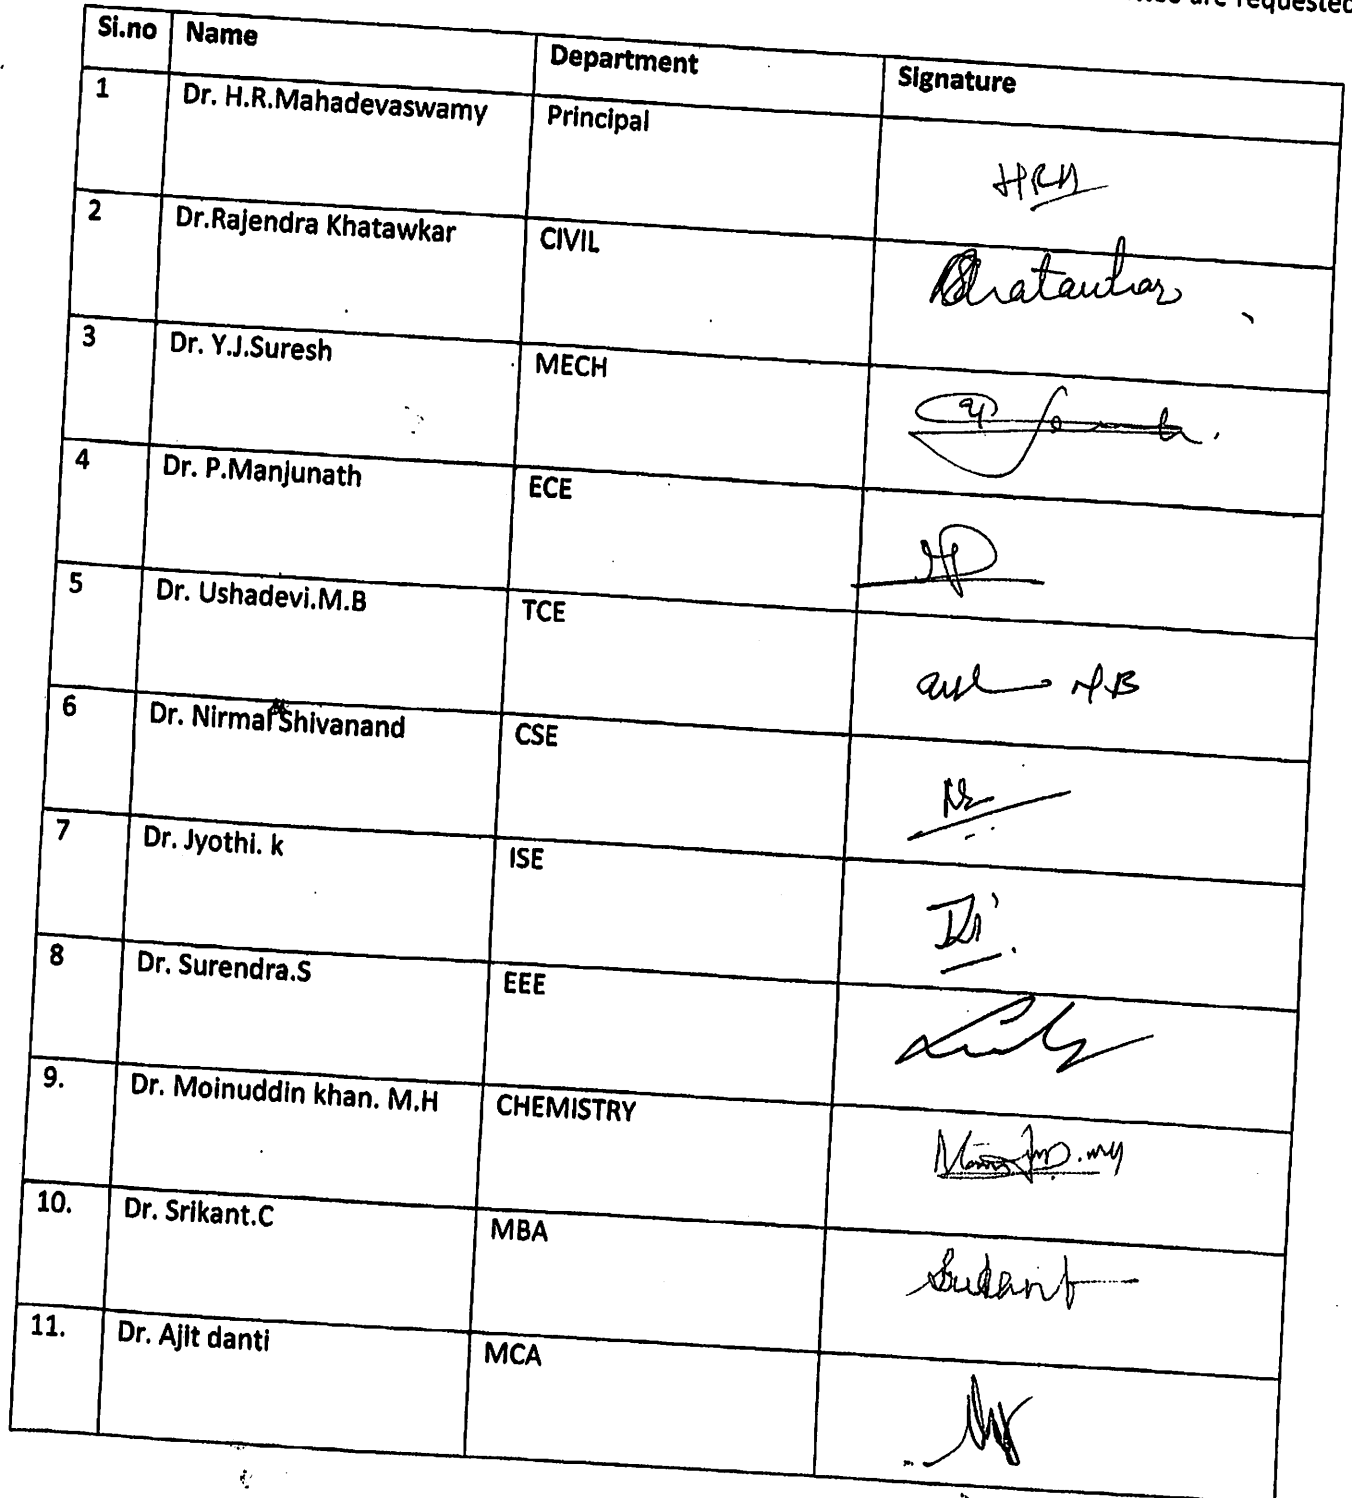 are requested
Si.no Name Department Signature
1 Dr. H.R.Mahadevaswamy Principal HRM
2 Dr.Rajendra Khatawkar CIVIL Khatawkar
3 Dr. Y.J.Suresh MECH
4 Dr. P.Manjunath ECE
5 Dr. Ushadevi.M.B TCE M.B
6 Dr. Nirmal Shivanand CSE
7 Dr. Jyothi. k ISE
8 Dr. Surendra.S EEE
9. Dr. Moinuddin khan. M.H CHEMISTRY
10. Dr. Srikant.C MBA
11. Dr. Ajit danti MCA